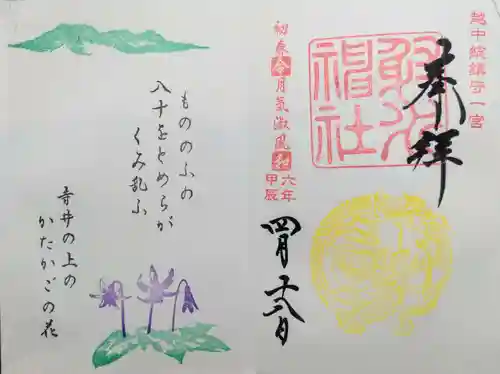 越中総鎮守一宮
奉拝
射水神社
初春令月気淑風和
六年
甲辰
四月二十八日
もののふの
八十をとめらが
くみ乱ふ
寺井の上の
かたかごの花